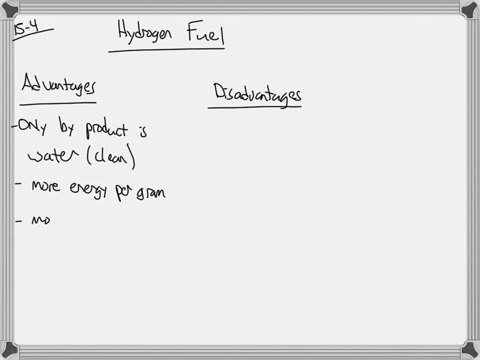 15-4
Hydrogen Fuel
Advantages
Disadvantages
-Only by product is
water (clean)
- more energy per gram
- mo